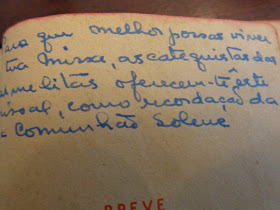 Para que melhor possas viver
tua missa, as catequistas das
oferecem-te êste
missal, como recordação da
a Comunhão Solene
BREVE